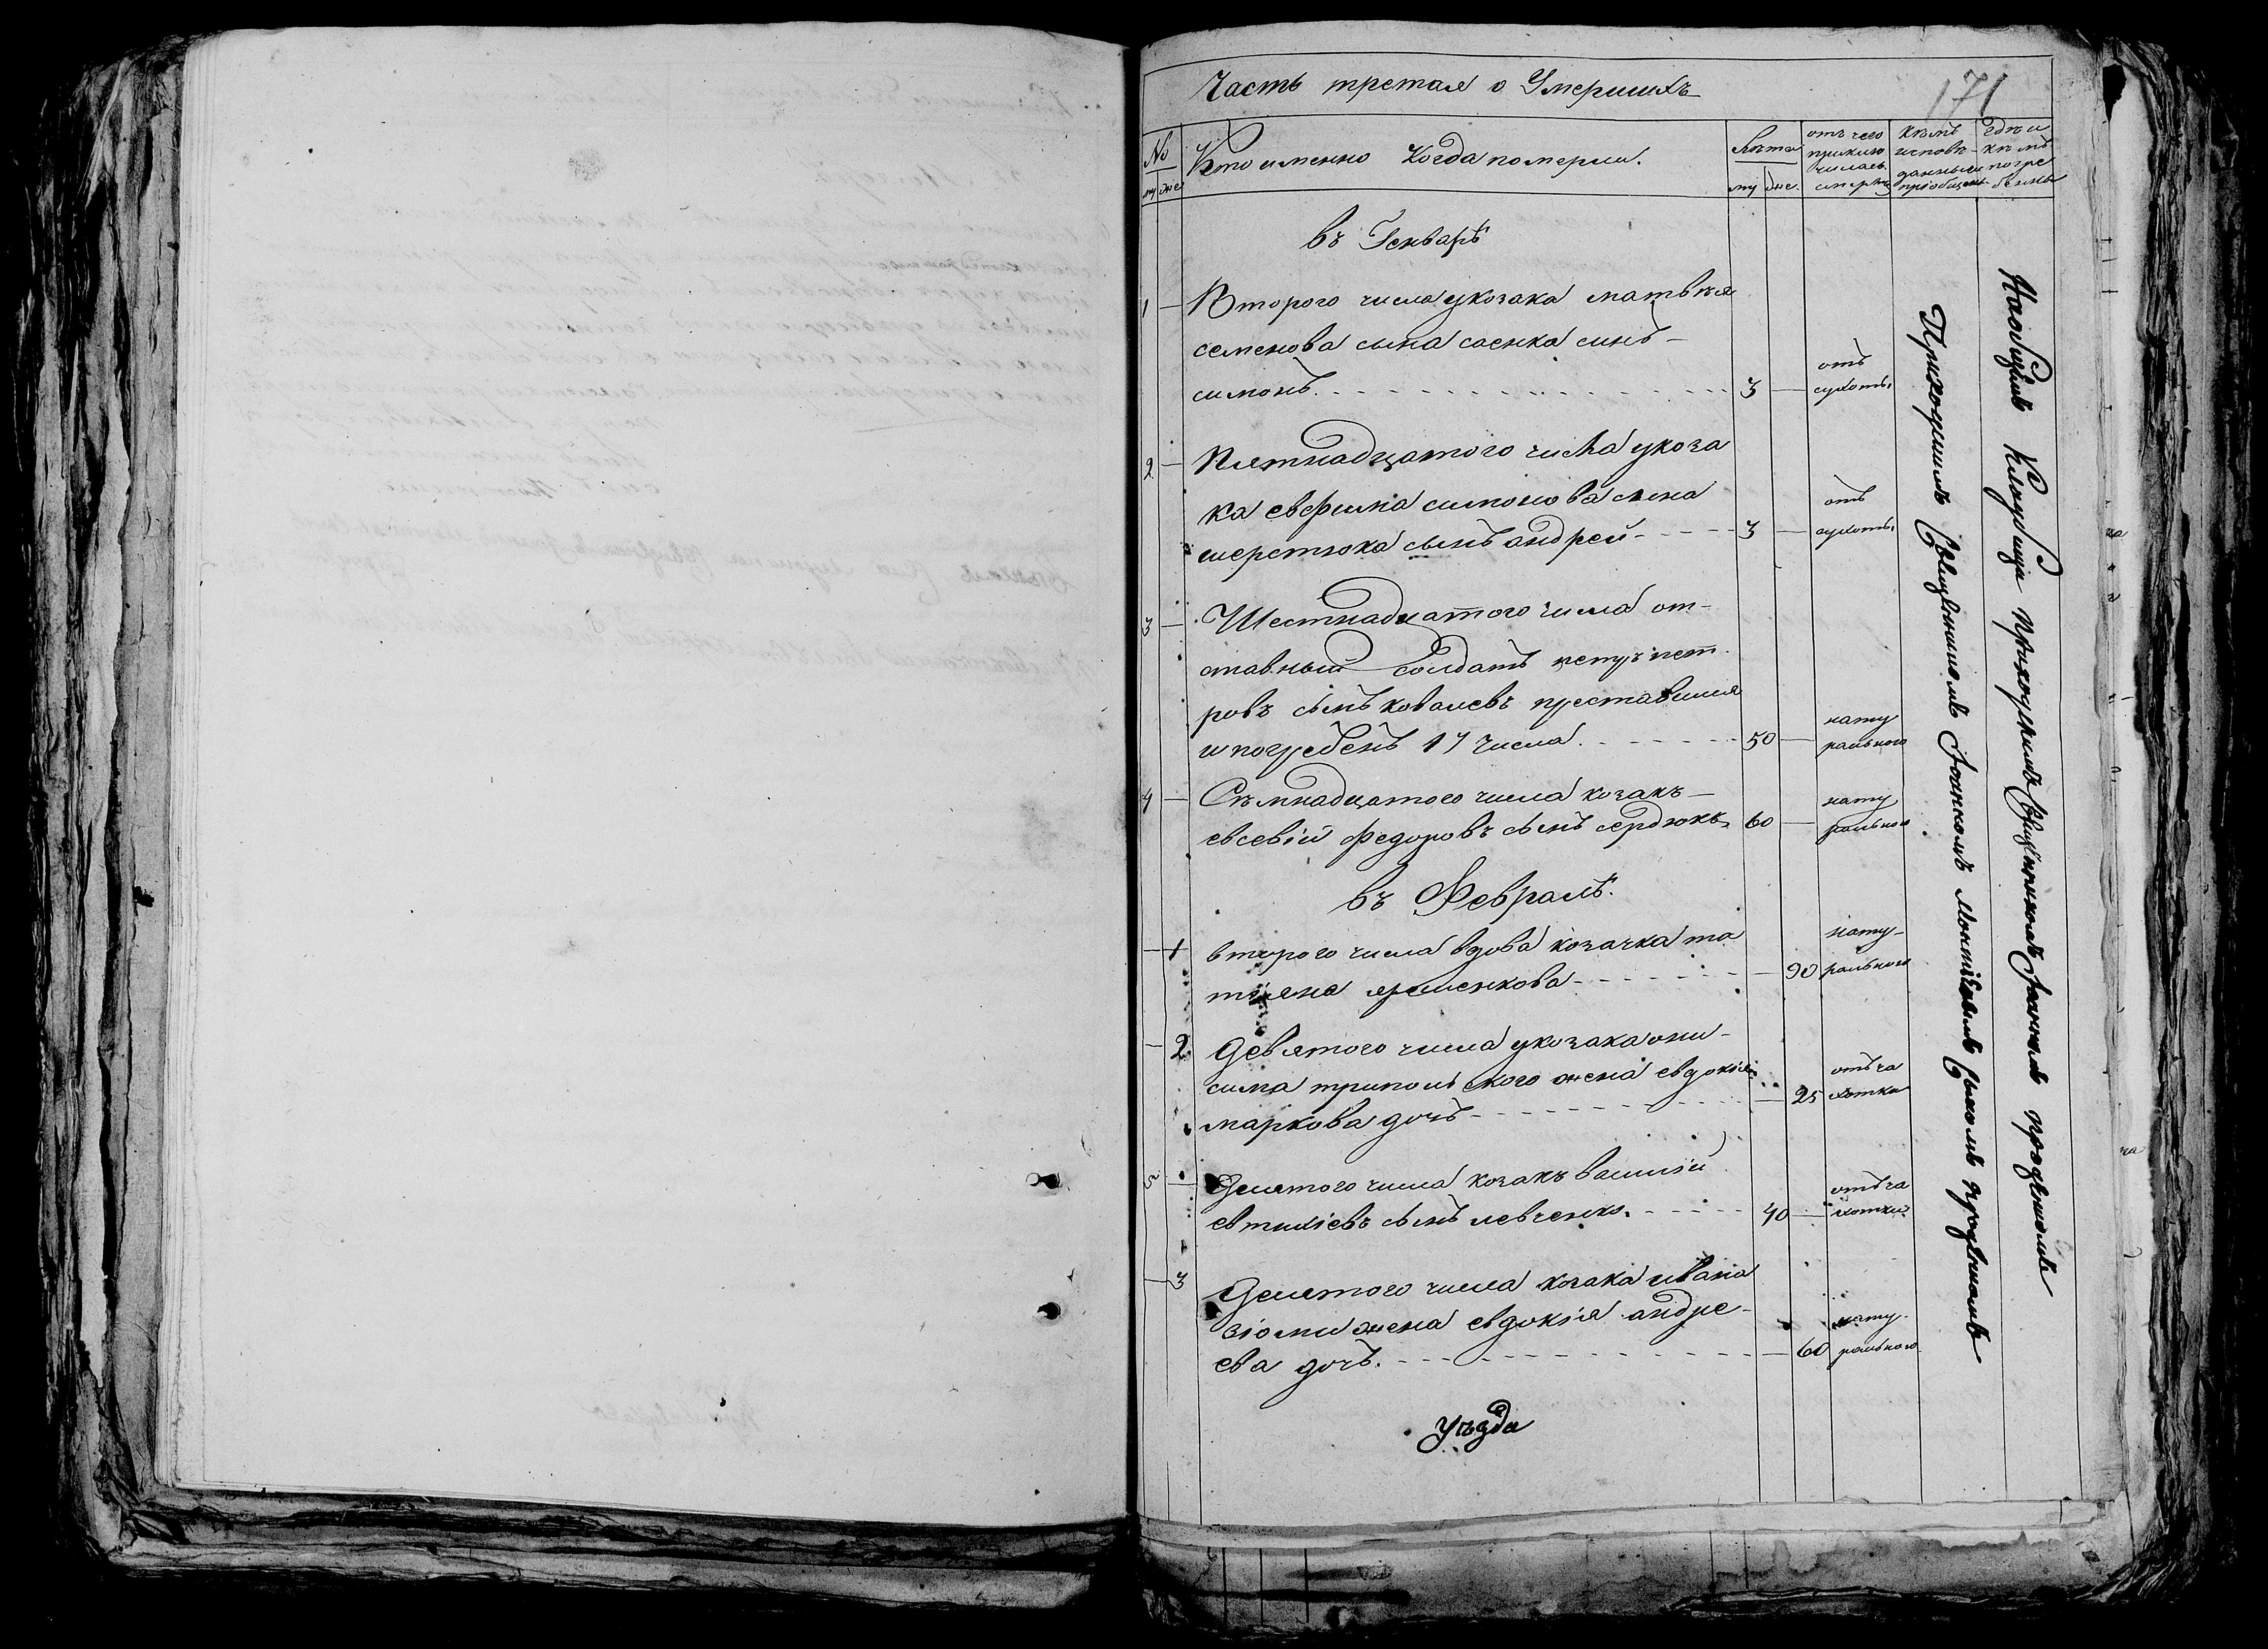 Часть третая о Умершихъ
171
№
му же
Кто именно когда померли.
Лѣта
му же.
отъ чего
приклю
чилась
смерть
кѣмъ
исповѣ-
даныи
приобщены
гдѣ и
кѣмъ
погре
бены
въ Генварѣ
1 — Второго числа укозака матвѣя
семенова сына саенка синъ —
симонъ. 3 —
отъ
сухоты
2 — Пятнадцатого числа укоза
ка евфима симонова сына
шерстюка сынъ андрей - - - 3 —
отъ
сухоты
3 — Шестнадцатого числа от-
ставный солдатъ петръ пет-
ровъ сынъ ковалевъ преставился
и погребенъ 17 числа. 50 —
нату
рального
4 — Сѣмнадцатого числа козакъ —
евсевій федоровъ сынъ сердюкъ 60 —
нату
рального
въ Февралѣ.
— 1 второго числа вдова козачка та
тіяна яременкова - - - — 90
нату-
рального
— 2 Девятого числа укозака они-
сима трипольского жена евдокія
маркова дочъ - - - — 25
отъ ча
хотки
5 — Девятого числа козакъ василій
евтихіевъ сынъ левченко. - - - 40 —
отъ ча
хотки
— 3 Девятого числа козака ивана
зіомы жена евдокія андре-
ева дочъ. - - - — 60
нату-
рального
уѣзда
Приходскимъ Священникомъ Іоанномъ
Наобщемъ Кладбище Приходскимъ Священникомъ Іоанномъ